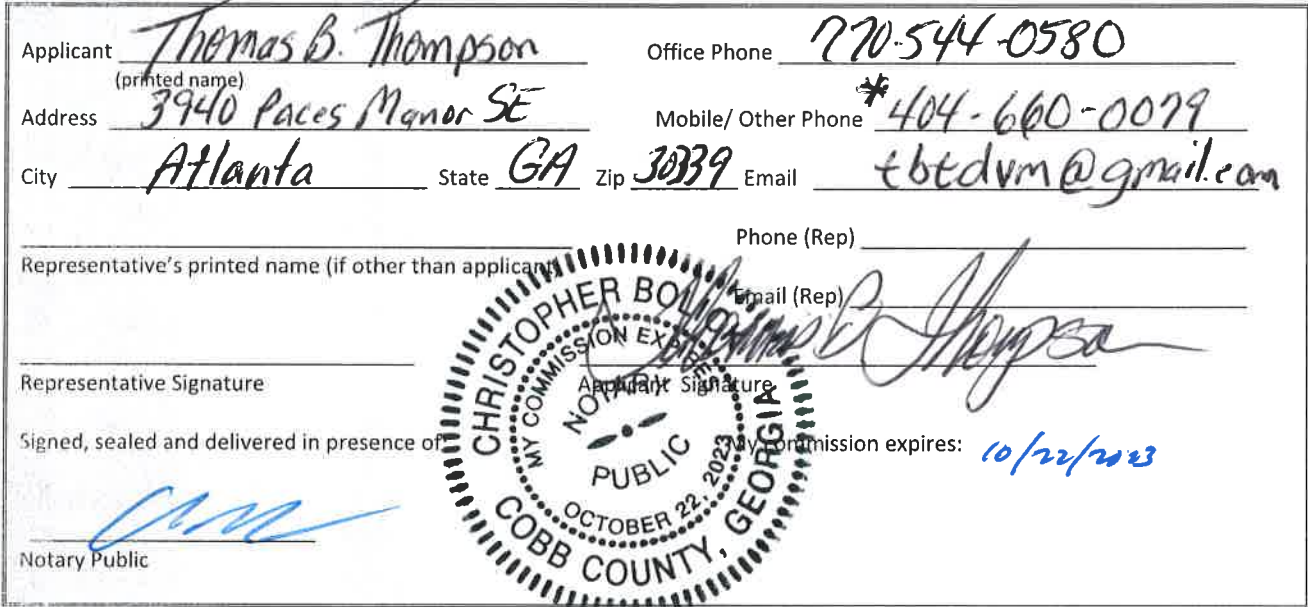 Applicant Thomas B. Thompson Office Phone 770-544-0580
(printed name)
Address 3940 Paces Manor SE Mobile/ Other Phone *404-660-0079
City Atlanta State GA Zip 30339 Email tbtdvm@gmail.com
Phone (Rep)
Representative's printed name (if other than applicant)
Email (Rep)
Thomas B Thompson
Representative Signature Applicant Signature
Signed, sealed and delivered in presence of: My commission expires: 10/22/2023
Notary Public
CHRISTOPHER
MY COMMISSION EXPIRES
NOTARY
PUBLIC
OCTOBER 22, 2023
COBB COUNTY, GEORGIA